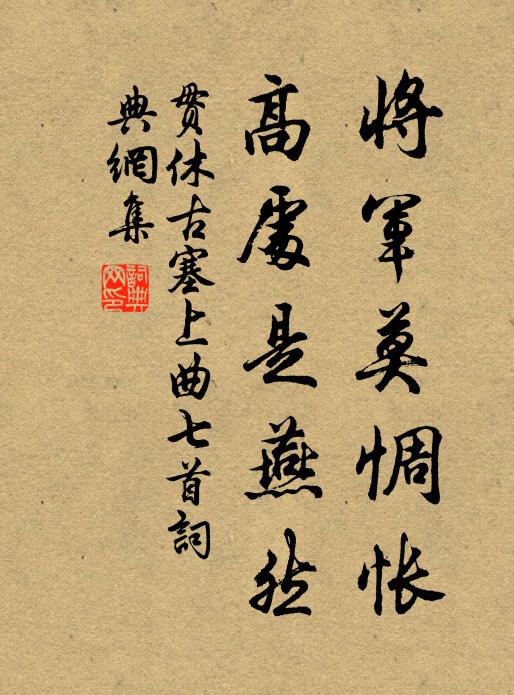 将军莫惆怅
高處是燕然
贯休古塞上曲七首詞
典網集
詞典
网印